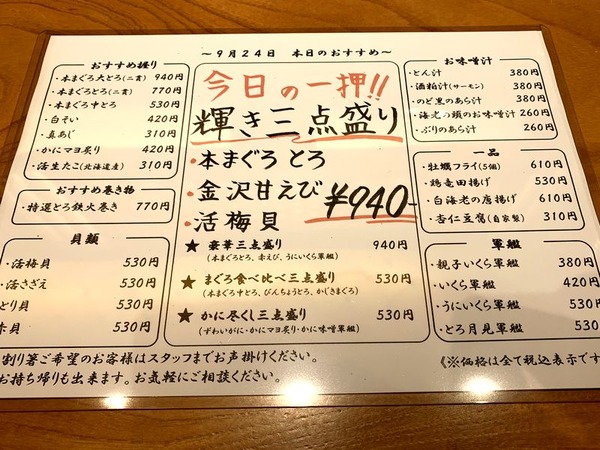 ～9月24日 本日のおすすめ～
おすすめ握り
・本まぐろ大とろ(二貫) 940円
・本まぐろとろ(二貫) 770円
・本まぐろ中とろ 530円
・白そい 420円
・真あじ 310円
・かにマヨ炙り 420円
・活生たこ(北海道産) 310円
おすすめ巻き物
・特選とろ鉄火巻き 770円
貝類
・活梅貝 530円
・活さざえ 530円
とり貝 530円
赤貝 530円
今日の一押!!
輝き三点盛り
・本まぐろ とろ
・金沢甘えび
・活梅貝
¥940-
★ 豪華三点盛り 940円
(本まぐろとろ、赤えび、うにいくら軍艦)
★ まぐろ食べ比べ三点盛り 530円
(本まぐろ中とろ、びんちょうとろ、かじきまぐろ)
★ かに尽くし三点盛り 530円
(ずわいがに・かにマヨ炙り・かに味噌軍艦)
お味噌汁
・とん汁 380円
・酒粕汁(サーモン) 380円
・のど黒のあら汁 380円
・海老の頭のお味噌汁 260円
・ぶりのあら汁 260円
一品
・牡蠣フライ(5個) 610円
・鶏竜田揚げ 530円
・白海老の唐揚げ 610円
・杏仁豆腐(自家製) 310円
軍艦
・親子いくら軍艦 380円
・いくら軍艦 420円
・うにいくら軍艦 530円
・とろ月見軍艦 530円
割り箸ご希望のお客様はスタッフまでお声掛けください。
お持ち帰りも出来ます。お気軽にご相談ください。
《※価格は全て税込表示です